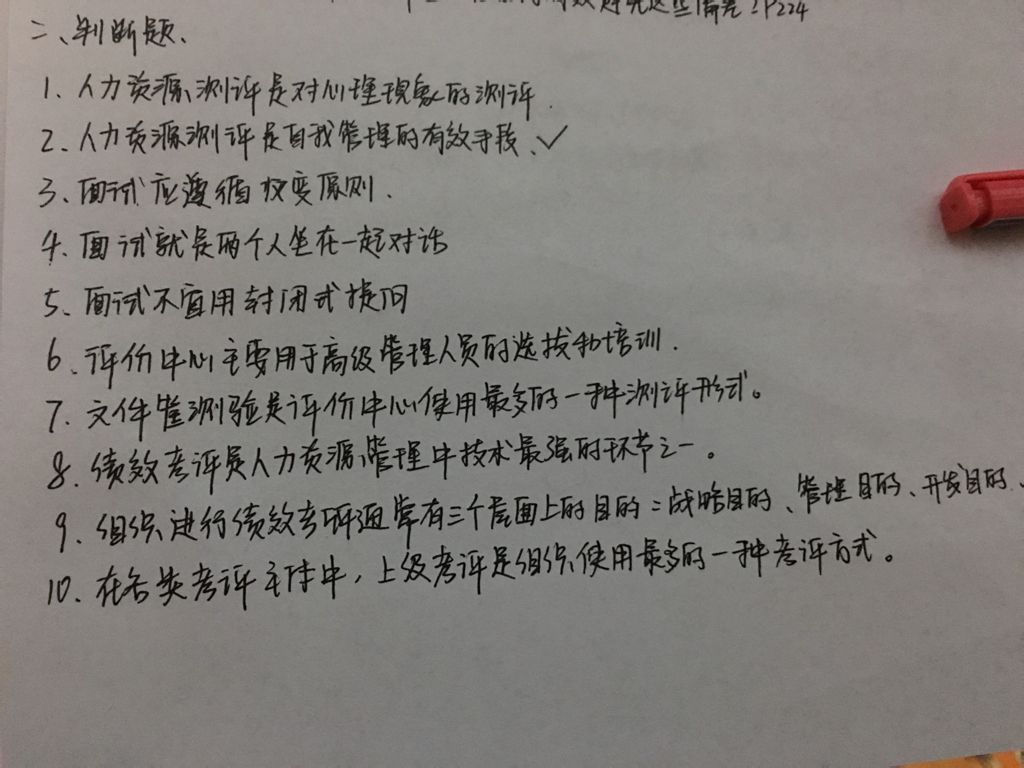 这些偏差？P224
二、判断题、
1、人力资源测评是对心理现象的测评.
2、人力资源测评是自我管理的有效手段、✓
3、面试应遵循权变原则.
4、面试就是两个人坐在一起对话
5、面试不宜用封闭式提问
6、评价中心主要用于高级管理人员的选拔和培训.
7、文件筐测验是评价中心使用最多的一种测评形式。
8、绩效考评是人力资源管理中技术最强的环节之一。
9、组织进行绩效考评通常有三个层面上的目的：战略目的、管理目的、开发目的、
10、在各类考评主体中，上级考评是组织使用最多的一种考评方式。